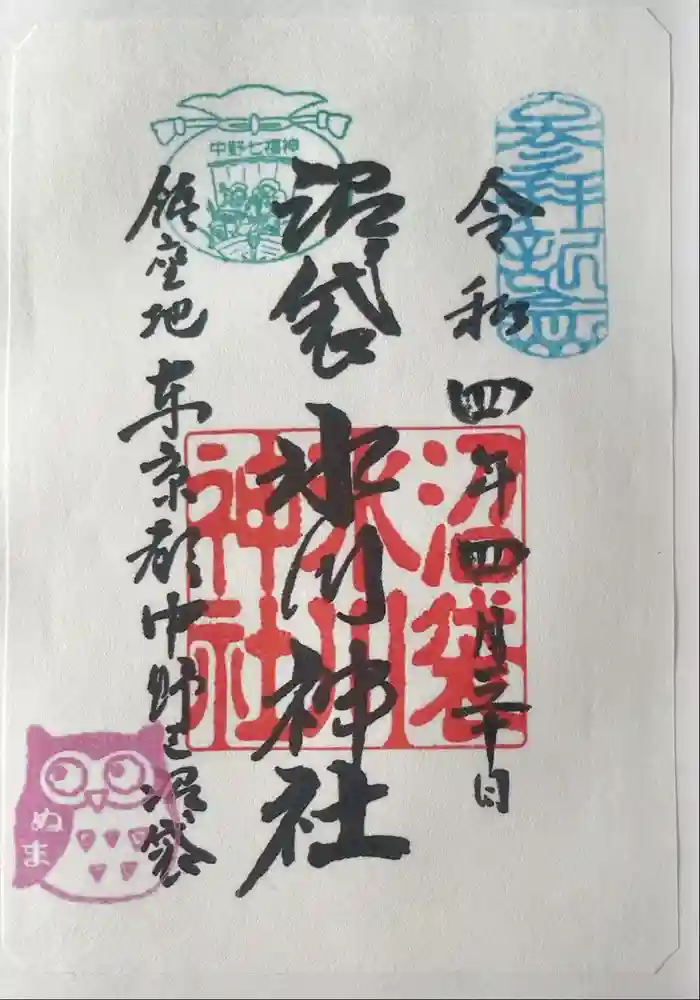 参拝記念
令和四年四月三十日
沼袋氷川神社
沼袋
氷川
神社
中野七福神
鎮座地 東京都中野区沼袋
ぬま